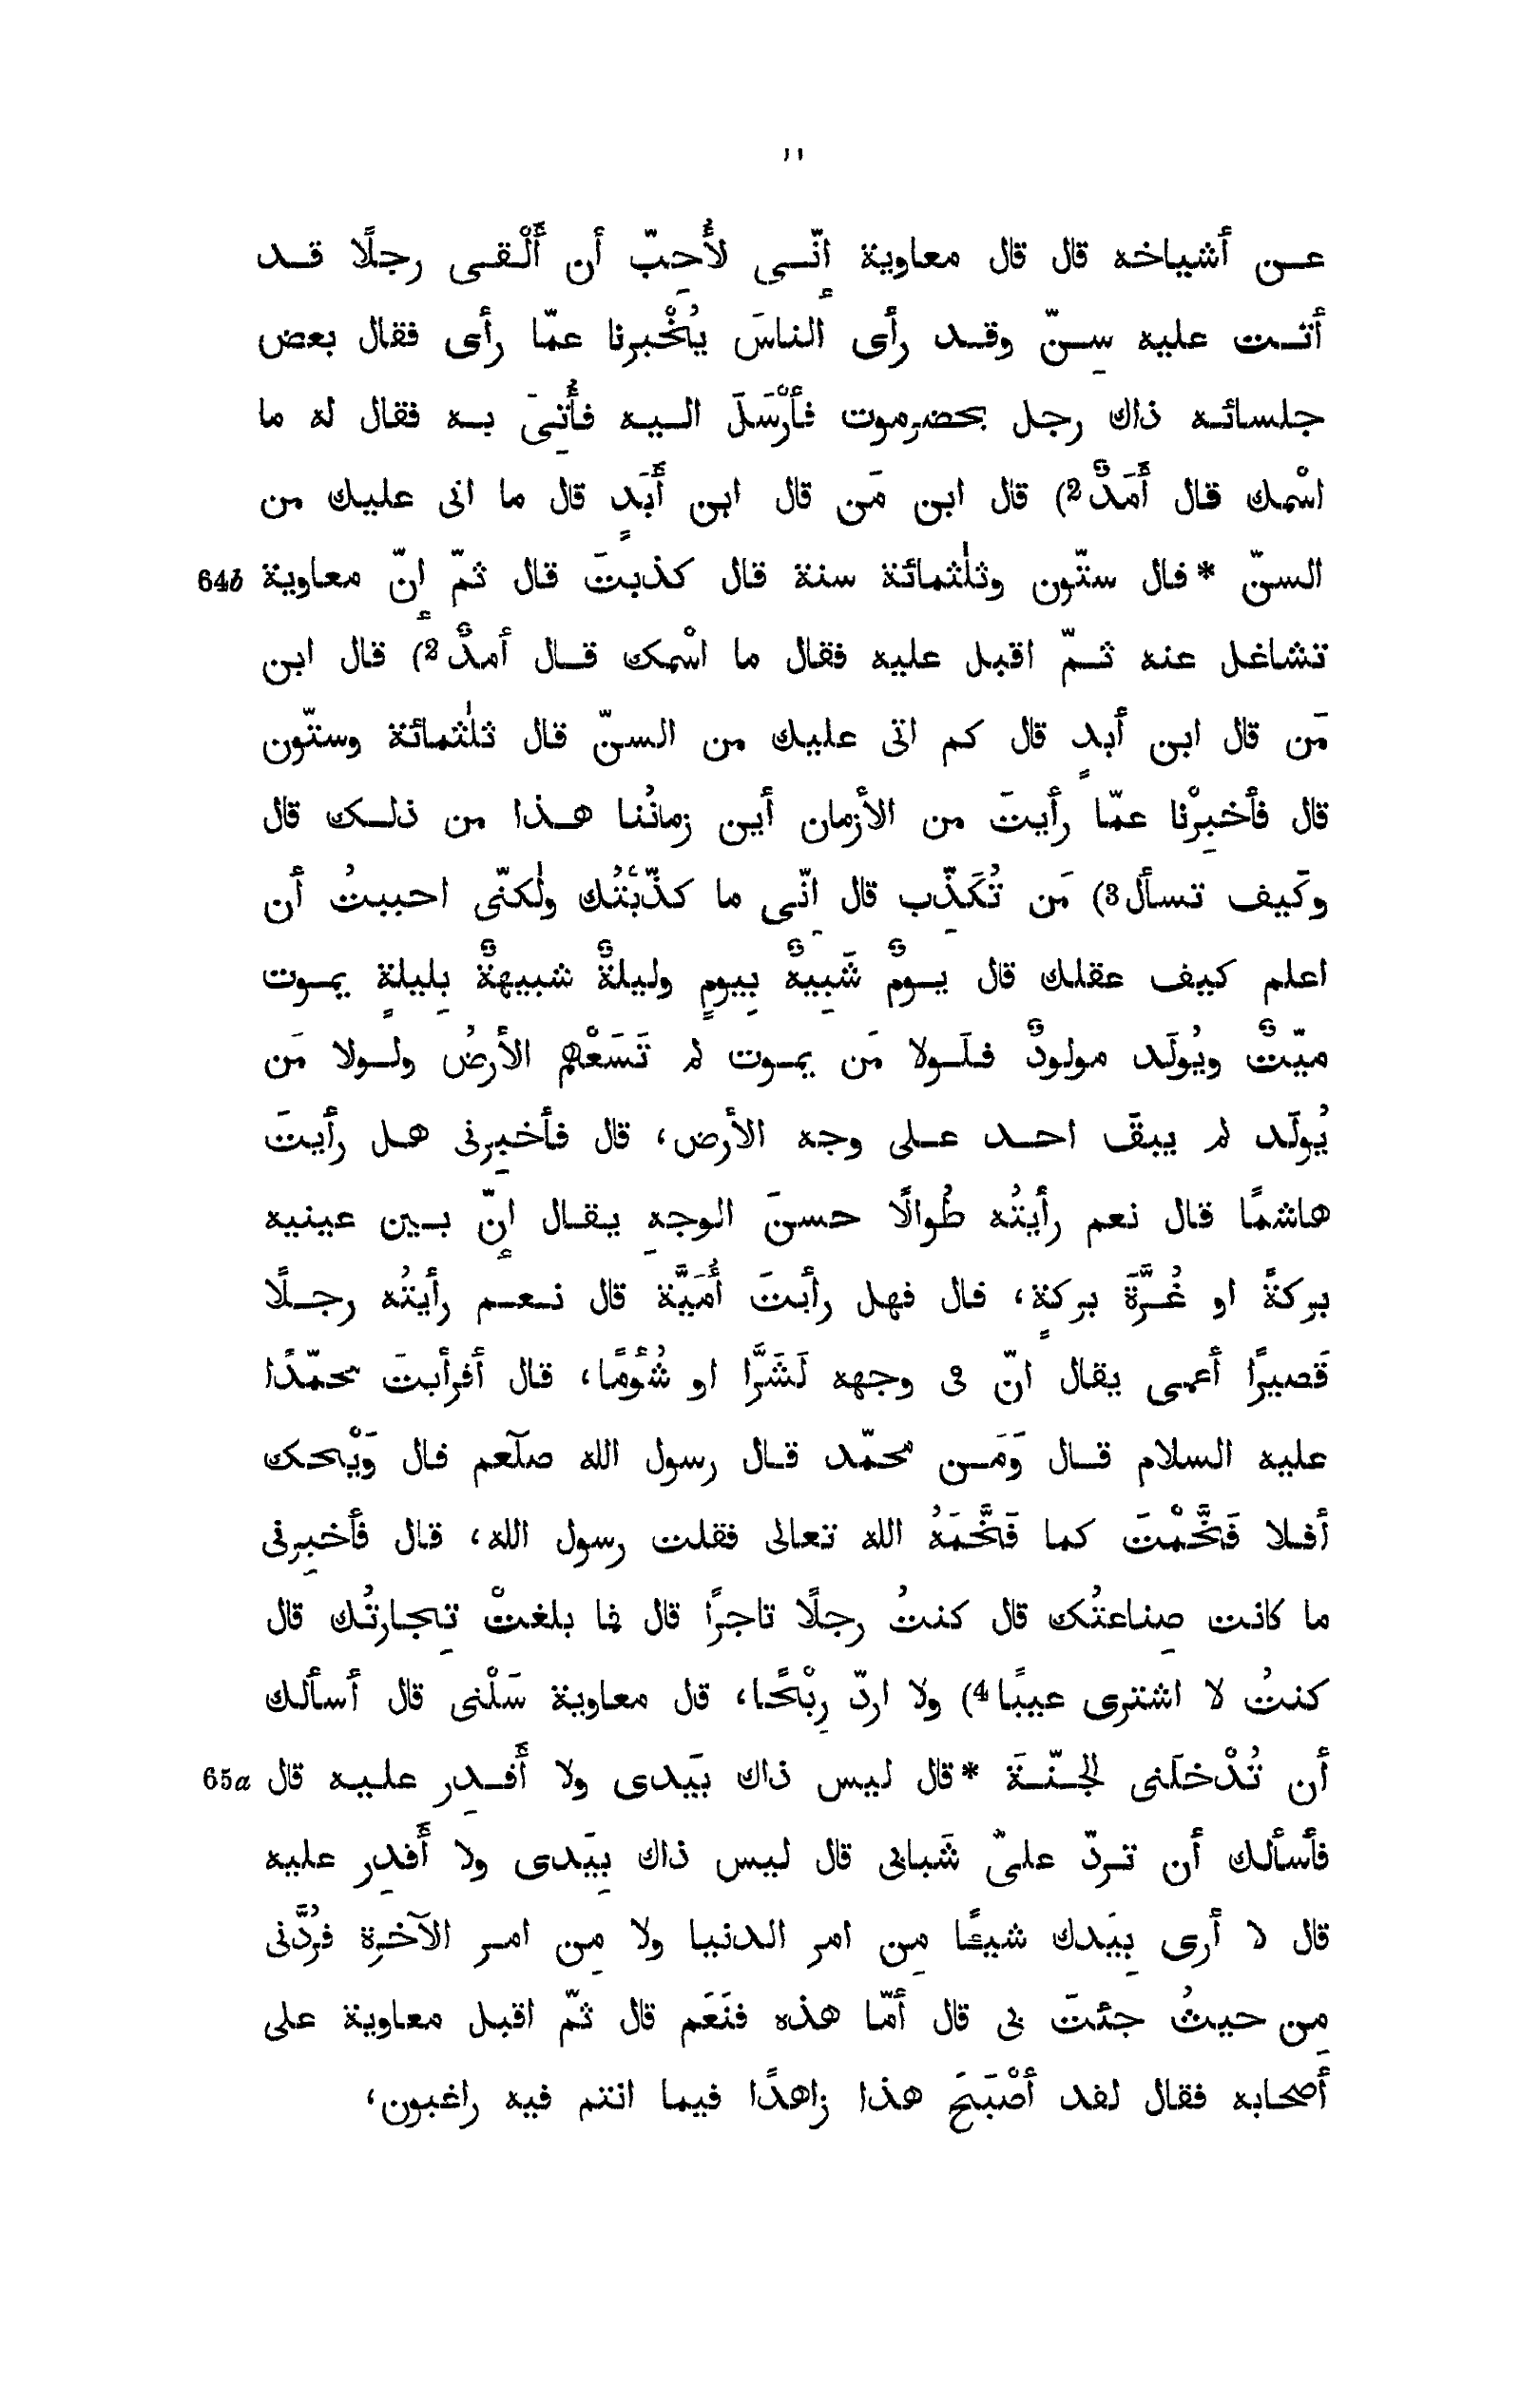 ١١
عن أشياخه قال قال معاوية إنّى لأُحِبّ أن أَلْقى رجلًا قد
أتت عليه سِنّ وقد رأى الناسَ يُخْبرنا عمّا رأى فقال بعض
جلسائه ذاك رجل بحضرموت فأَرْسَلَ اليه فأُتِىَ به فقال له ما
اسْمك قال أَمَدٌ (2 قال ابن مَن قال ابن أَبَدٍ قال ما اتى عليك من
السنّ * قال ستّون وثلٰثمائة سنة قال كذبتَ قال ثمّ إنّ معاوية 64b
تشاغل عنه ثمّ اقبل عليه فقال ما اسْمك قال أمدٌ (2 قال ابن
مَن قال ابن أبدٍ قال كم اتى عليك من السنّ قال ثلٰثمائة وستّون
قال فأخبِرْنا عمّا رأيتَ من الأزمان أين زمانُنا هذا من ذلك قال
وكَيف تسأل (3 مَن تُكَذِّب قال إنّى ما كذّبْتُك ولٰكنّى احببتُ أن
اعلم كيف عقلك قال يومٌ شَبِيهٌ بِيومٍ وليلةٌ شبيهةٌ بِليلةٍ يموت
ميّتٌ ويُولَد مولودٌ فلَولا مَن يموت لم تَسَعْهم الأرضُ ولولا مَن
يُولَد لم يبقَ احد على وجه الأرض، قال فأخبِرنى هل رأيتَ
هاشمًا قال نعم رأيتُه طُوالًا حسنَ الوجهِ يقال إنّ بين عينيه
بركةً او غُرَّةَ بركةٍ، قال فهل رأيتَ أُمَيَّةَ قال نعم رأيتُه رجلًا
قَصيرًا أعمى يقال انّ فى وجهه لَشَرًّا او شُؤمًا، قال أفرأيتَ محمّدًا
عليه السلام قال وَمَن محمّد قال رسول الله صلّعم قال وَيْحك
أفلا فَخَّمْتَ كما فَخَّمَهُ الله تعالى فقلت رسول الله، قال فأخبِرنى
ما كانت صِناعتُك قال كنتُ رجلًا تاجرًا قال فما بلغتْ تِجارتُك قال
كنتُ لا اشترى عيبًا (4 ولا اردّ رِبْحًا، قل معاوية سَلْنى قال أسألك
أن تُدْخلَنى الجنّةَ * قال ليس ذاك بيَدى ولا أَقدِر عليه قال 65a
فأسألك أن تردّ علىّ شَبابى قال ليس ذاك بِيَدى ولا أَقدِر عليه
قال لا أرى بِيَدك شيئًا مِن امر الدنيا ولا مِن امر الآخرة فرُدَّنى
مِن حيثُ جئتَ بى قال أمّا هذه فنَعَم قال ثمّ اقبل معاوية على
أصحابه فقال لقد أَصْبَحَ هذا زاهدًا فيما انتم فيه راغبون،